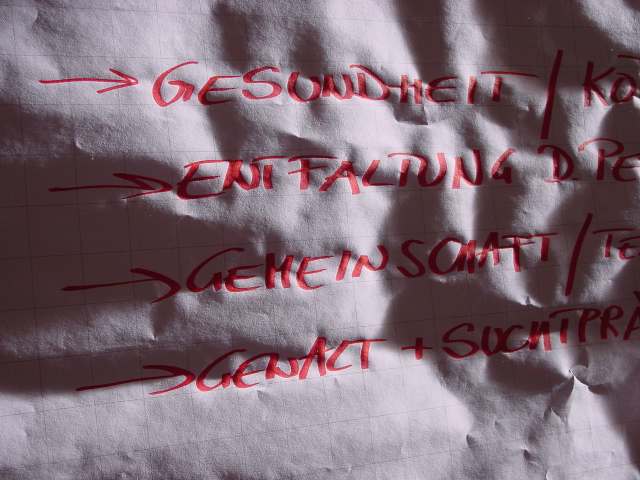 → GESUNDHEIT / KÖ
→ ENTFALTUNG D. PE
→ GEMEINSCHAFT / TE
→ GEWALT + SUCHTPRÄ